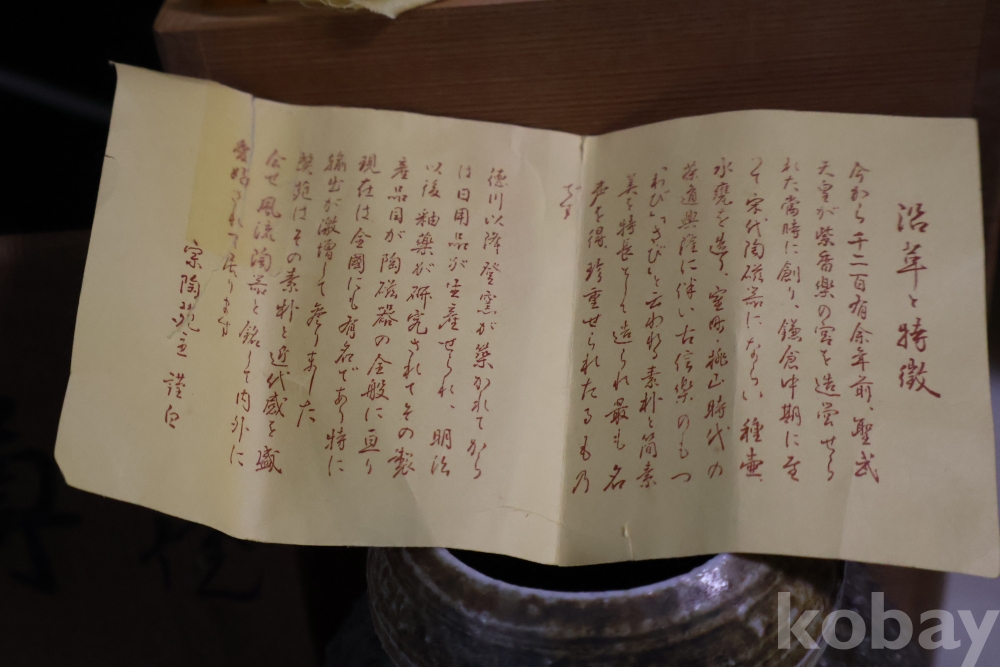 沿革と特徴
今から千二百有余年前、聖武
天皇が紫香楽の宮を造営せら
れた当時に創り、鎌倉中期に至
って宋代陶磁器にならい種壷
水甕を造り、室町・桃山時代の
茶道興隆に伴い古信楽のもつ
"わび""さび"と云われる素朴と簡素
美を特長として造られ最も名
声を得、珍重せられたるもの
です
徳川以降登窯が築かれてから
は日用品が生産せられ、明治
以後釉薬が研究されてその製
産品目が陶磁器の全般に亘り
現在は全國にも有名であり特に
輸出が激増して参りました
弊苑はその素朴と近代感を盛
合せ風流陶器と銘して内外に
愛好されて居ります
宗陶苑主 謹白
kobay